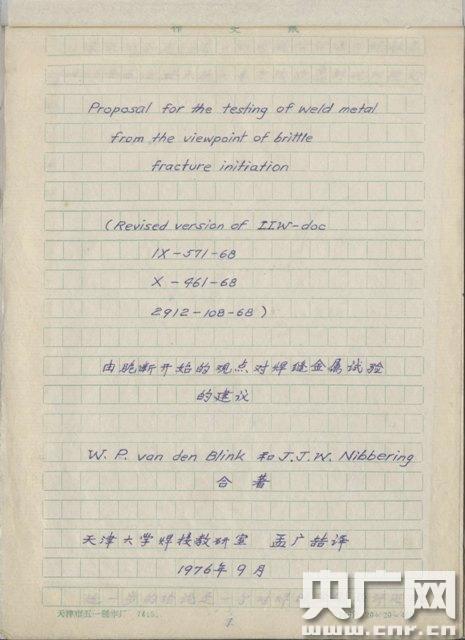 作文纸
Proposal for the testing of weld metal
from the viewpoint of brittle
fracture initiation
(Revised version of IIW-doc
IX-571-68
X-461-68
2912-108-68)
由脆断开始的观点对焊缝金属试验
的建议
W. P. van den Blink 和 J.J.W. Nibbering
合著
天津大学焊接教研室 孟广喆译
1976年9月
天津市五一制本厂
央广网
www.cnr.cn